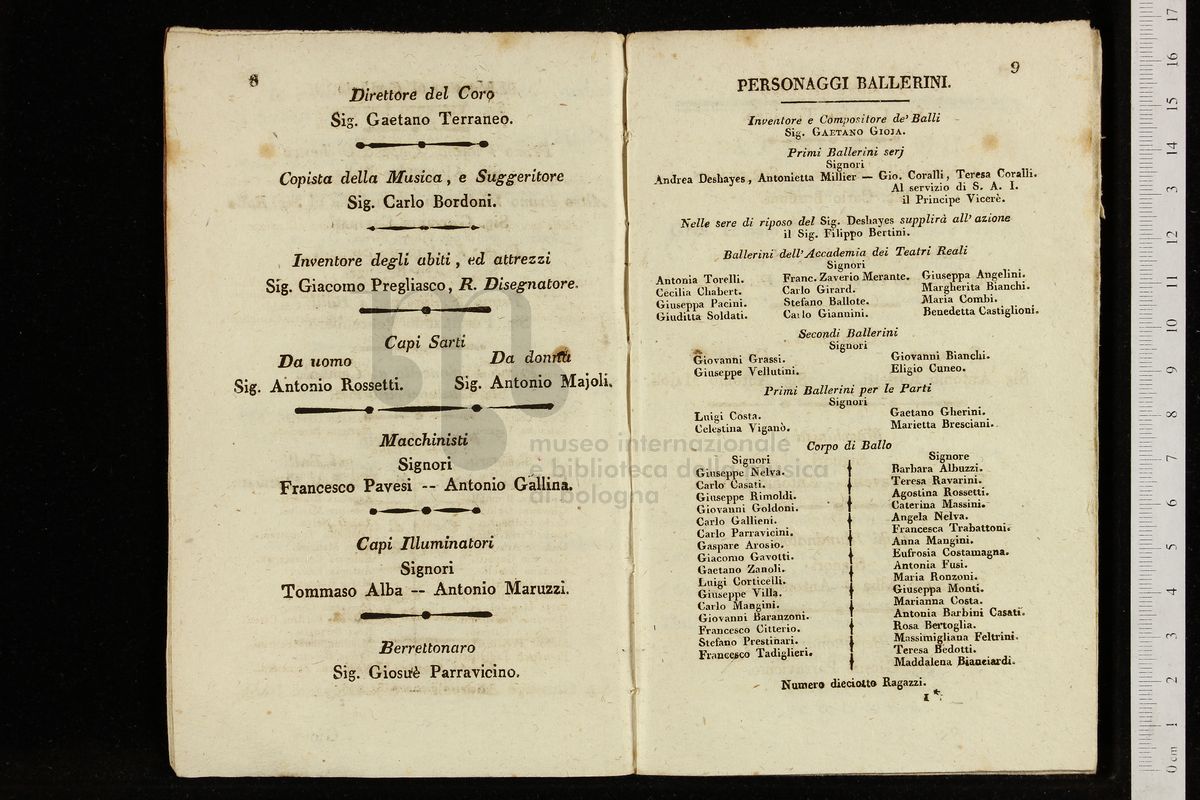 8
Direttore del Coro
Sig. Gaetano Terraneo.
Copista della Musica, e Suggeritore
Sig. Carlo Bordoni.
Inventore degli abiti, ed attrezzi
Sig. Giacomo Pregliasco, R. Disegnatore.
Capi Sarti
Da uomo
Da donna
Sig. Antonio Rossetti.
Sig. Antonio Majoli.
Macchinisti
Signori
Francesco Pavesi -- Antonio Gallina.
Capi Illuminatori
Signori
Tommaso Alba -- Antonio Maruzzi.
Berrettonaro
Sig. Giosuè Parravicino.
9
PERSONAGGI BALLERINI.
Inventore e Compositore de' Balli
Sig. GAETANO GIOJA.
Primi Ballerini serj
Signori
Andrea Deshayes, Antonietta Millier — Gio. Coralli, Teresa Coralli.
Al servizio di S. A. I.
il Principe Vicerè.
Nelle sere di riposo del Sig. Deshayes supplirà all' azione
il Sig. Filippo Bertini.
Ballerini dell'Accademia dei Teatri Reali
Signori
Antonia Torelli.
Cecilia Chabert.
Giuseppa Pacini.
Giuditta Soldati.
Franc. Zaverio Merante.
Carlo Girard.
Stefano Ballote.
Carlo Giannini.
Giuseppa Angelini.
Margherita Bianchi.
Maria Combi.
Benedetta Castiglioni.
Secondi Ballerini
Signori
Giovanni Grassi.
Giuseppe Vellutini.
Giovanni Bianchi.
Eligio Cuneo.
Primi Ballerini per le Parti
Signori
Luigi Costa.
Celestina Viganò.
Gaetano Gherini.
Marietta Bresciani.
Corpo di Ballo
Signori
Giuseppe Nelva.
Carlo Casati.
Giuseppe Rimoldi.
Giovanni Goldoni.
Carlo Gallieni.
Carlo Parravicini.
Gaspare Arosio.
Giacomo Gavotti.
Gaetano Zanoli.
Luigi Corticelli.
Giuseppe Villa.
Carlo Mangini.
Giovanni Baranzoni.
Francesco Citterio.
Stefano Prestinari.
Francesco Tadiglieri.
Signore
Barbara Albuzzi.
Teresa Ravarini.
Agostina Rossetti.
Caterina Massini.
Angela Nelva.
Francesca Trabattoni.
Anna Mangini.
Eufrosia Costamagna.
Antonia Fusi.
Maria Ronzoni.
Giuseppa Monti.
Marianna Costa.
Antonia Barbini Casati.
Rosa Bertoglia.
Massimigliana Feltrini.
Teresa Bedotti.
Maddalena Bianciardi.
Numero dieciotto Ragazzi.
1 *
museo internazionale
e biblioteca della musica
di bologna
0 cm 1 2 3 4 5 6 7 8 9 10 11 12 13 14 15 16 17